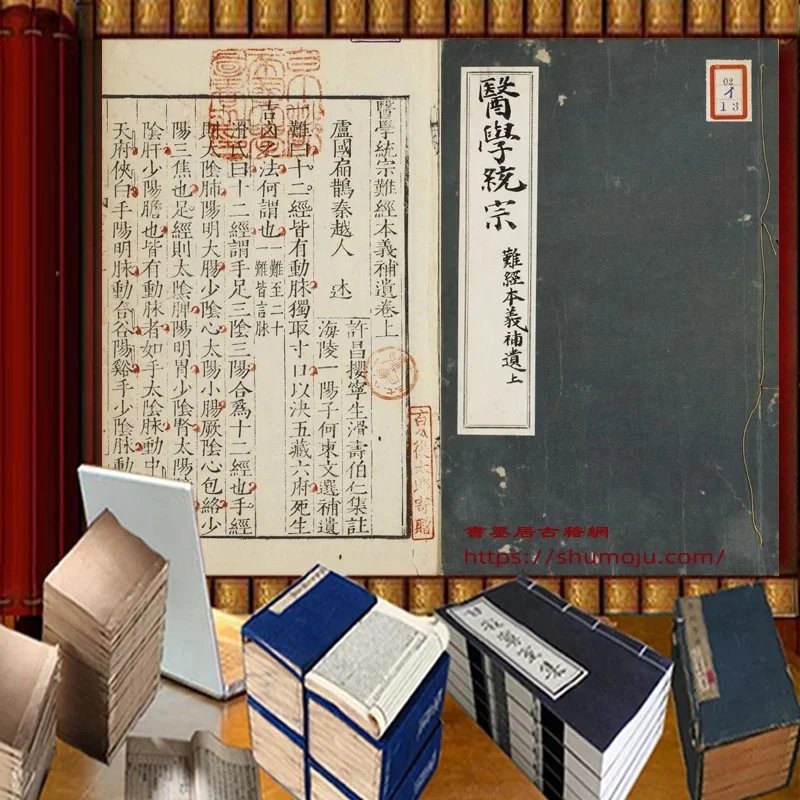 醫學統宗
難經本義補遺 上
02
13
醫學統宗難經本義補遺卷上
盧國扁鵲秦越人 述
許昌攖寧生滑壽伯仁集註
海陵一陽子何柬文選補遺
難曰十二經皆有動脉獨取寸口以決五藏六府死生
吉凶之法何謂也 一難至二十
難皆言脉
滑氏曰十二經謂手足三陰三陽合爲十二經也手經
則太陰肺陽明大腸少陰心太陽小腸厥陰心包絡少
陽三焦也足經則太陰脾陽明胃少陰腎太陽
陰肝少陽膽也皆有動脉者如手太陰脉動中
天府俠白手陽明脉動合谷陽谿手少陰脉動
書墨居古籍網
https://shumoju.com/